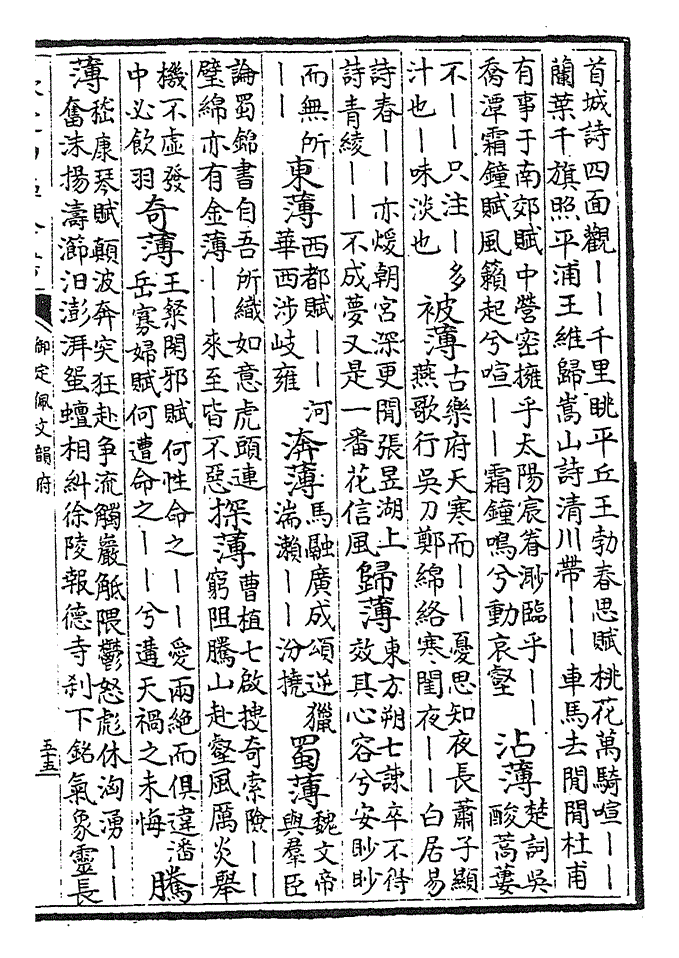 首城詩四面觀——千里眺平丘王勃春思賦桃花萬騎喧——蘭葉千旗照平浦王維歸嵩山詩清川帶——車馬去閒閒杜甫
有事于南郊賦中營密擁乎太陽宸眷渺臨乎——喬潭霜鐘賦風籟起兮喧——霜鐘鳴兮動哀壑沾薄楚詞吳酸蒿蔞
不——只注—多汁也—味淡也被薄古樂府天寒而——憂思知夜長蕭子顯燕歌行吳刀鄭綿絡寒閨夜——白居易
詩春——亦煖朝宮深更聞張昱湖上詩青綾——不成夢又是一番花信風歸薄東方朔七諫卒不得效其心容兮安眇眇
而無所——東薄西都賦——河華西涉岐雍奔薄馬融廣成頌逆獵湍瀨——汾撓蜀薄魏文帝與羣臣
論蜀錦書自吾所織如意虎頭連璧綿亦有金薄——來至皆不惡探薄曹植七啟搜奇索險——窮阻騰山赴壑風厲炎舉
機不虛發中必飲羽奇薄王粲閑邪賦何性命之——愛兩絕而俱違潘岳寡婦賦何遭命之——兮遘天禍之未悔騰
薄嵇康琴賦顛波奔突狂赴爭流觸巖觝隈鬱怒彪休洶湧——奮沬揚濤瀄汩澎湃蜿蟺相糾徐陵報德寺刹下銘氣象靈長
御定佩文韻府
五十五